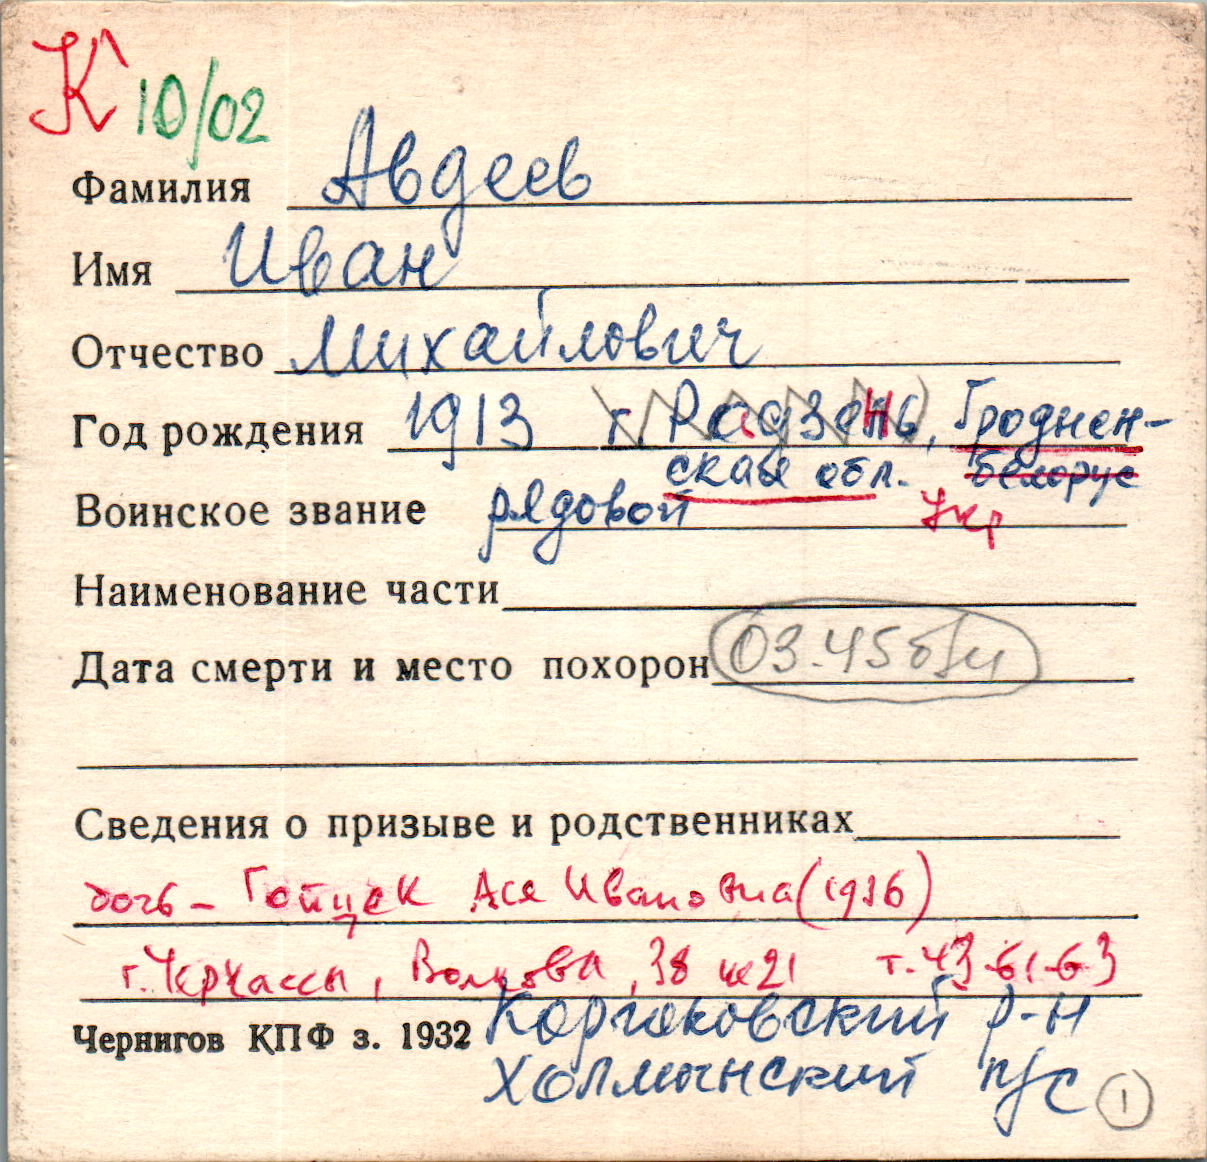 К 10/02
Фамилия Авдеев
Имя Иван
Отчество Михайлович
Год рождения 1913 г. Радзень, Гроднен-
ская обл. белорус
Воинское звание рядовой Укр
Наименование части
Дата смерти и место похорон 03.45 б/и
Сведения о призыве и родственниках
дочь - Ася Ивановна (1936)
г. Черкассы, Волкова, 38 кв 21 т. 43-61-63
Чернигов КПФ з. 1932 Корюковский р-н
Холминский п/с 1